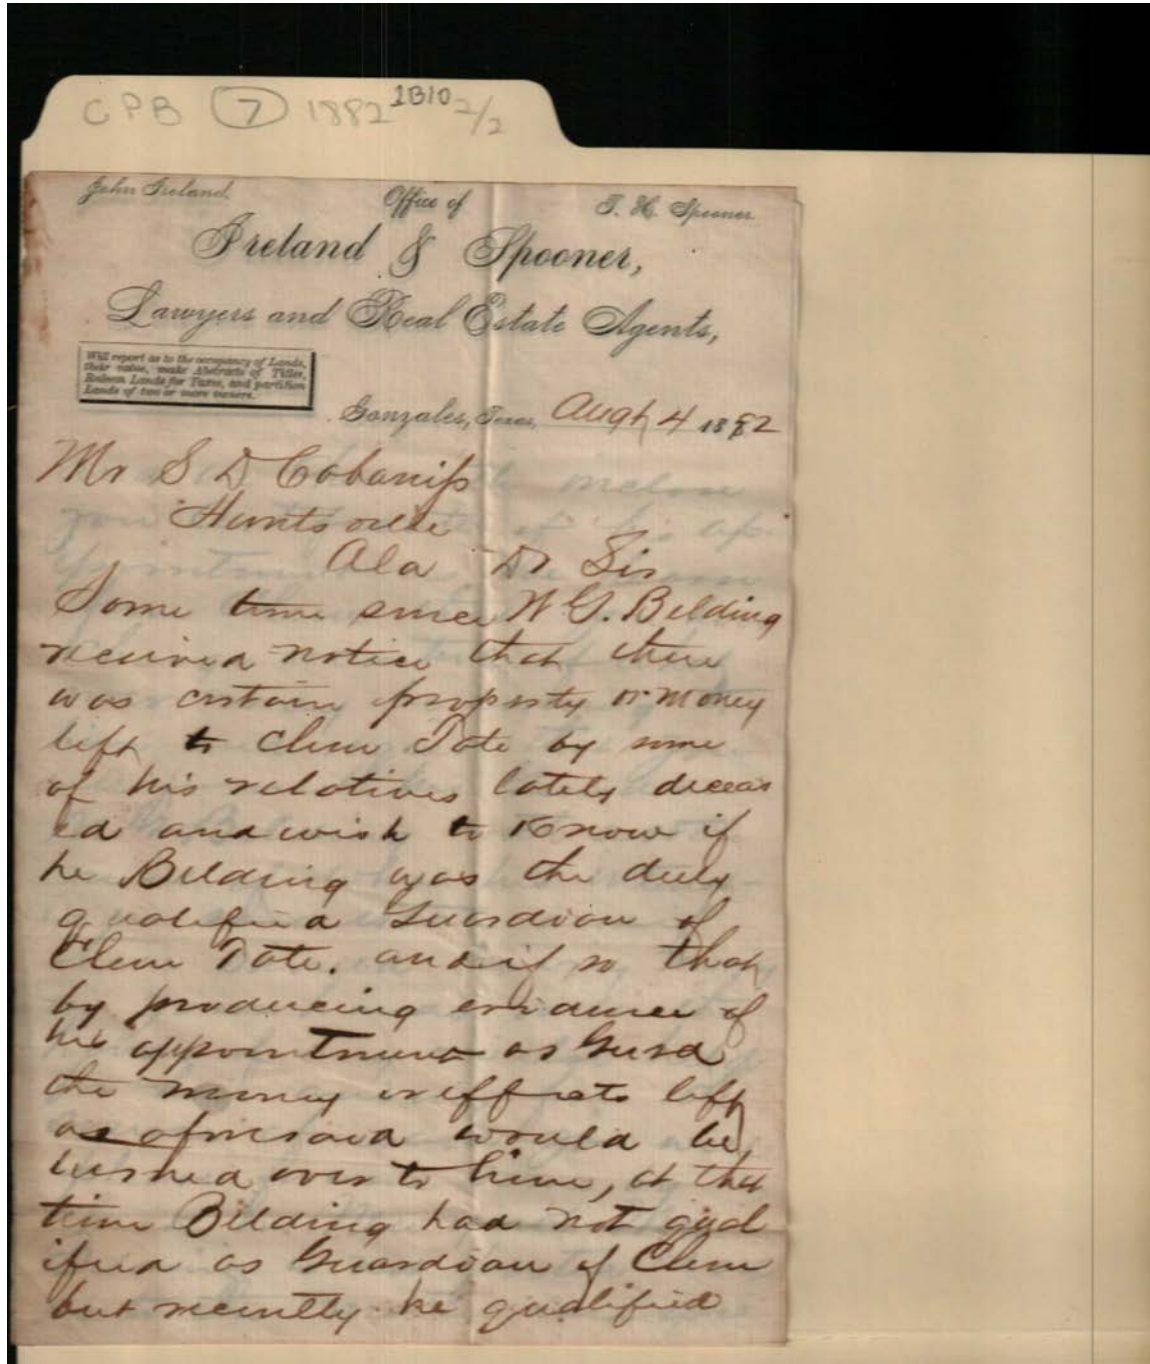 CPB 7 1882 1B10 2/2
John Ireland. Office of T. H. Spooner.
Ireland & Spooner,
Lawyers and Real Estate Agents,
Will report as to the occupancy of Lands,
their value, make Abstracts of Titles,
Redeem Lands for Taxes, and partition
Lands of two or more owners.
Gonzales, Texas, Augt 4 1882
Mr S D Cabaniss
Huntsville
Ala Dr Sir
Some time since W. G. Belding
received notice that there
was certain property or money
left to Clem Tate by some
of his relatives lately deceas
ed and wish to know if
he Belding was the duly
qualified Guardian of
Clem Tate. and if so that
by producing evidence of
his appointment as Guard
the money or effects left
as aforesaid would be
turned over to him, at that
time Belding had not qual
ified as Guardian of Clem
but recently he qualified